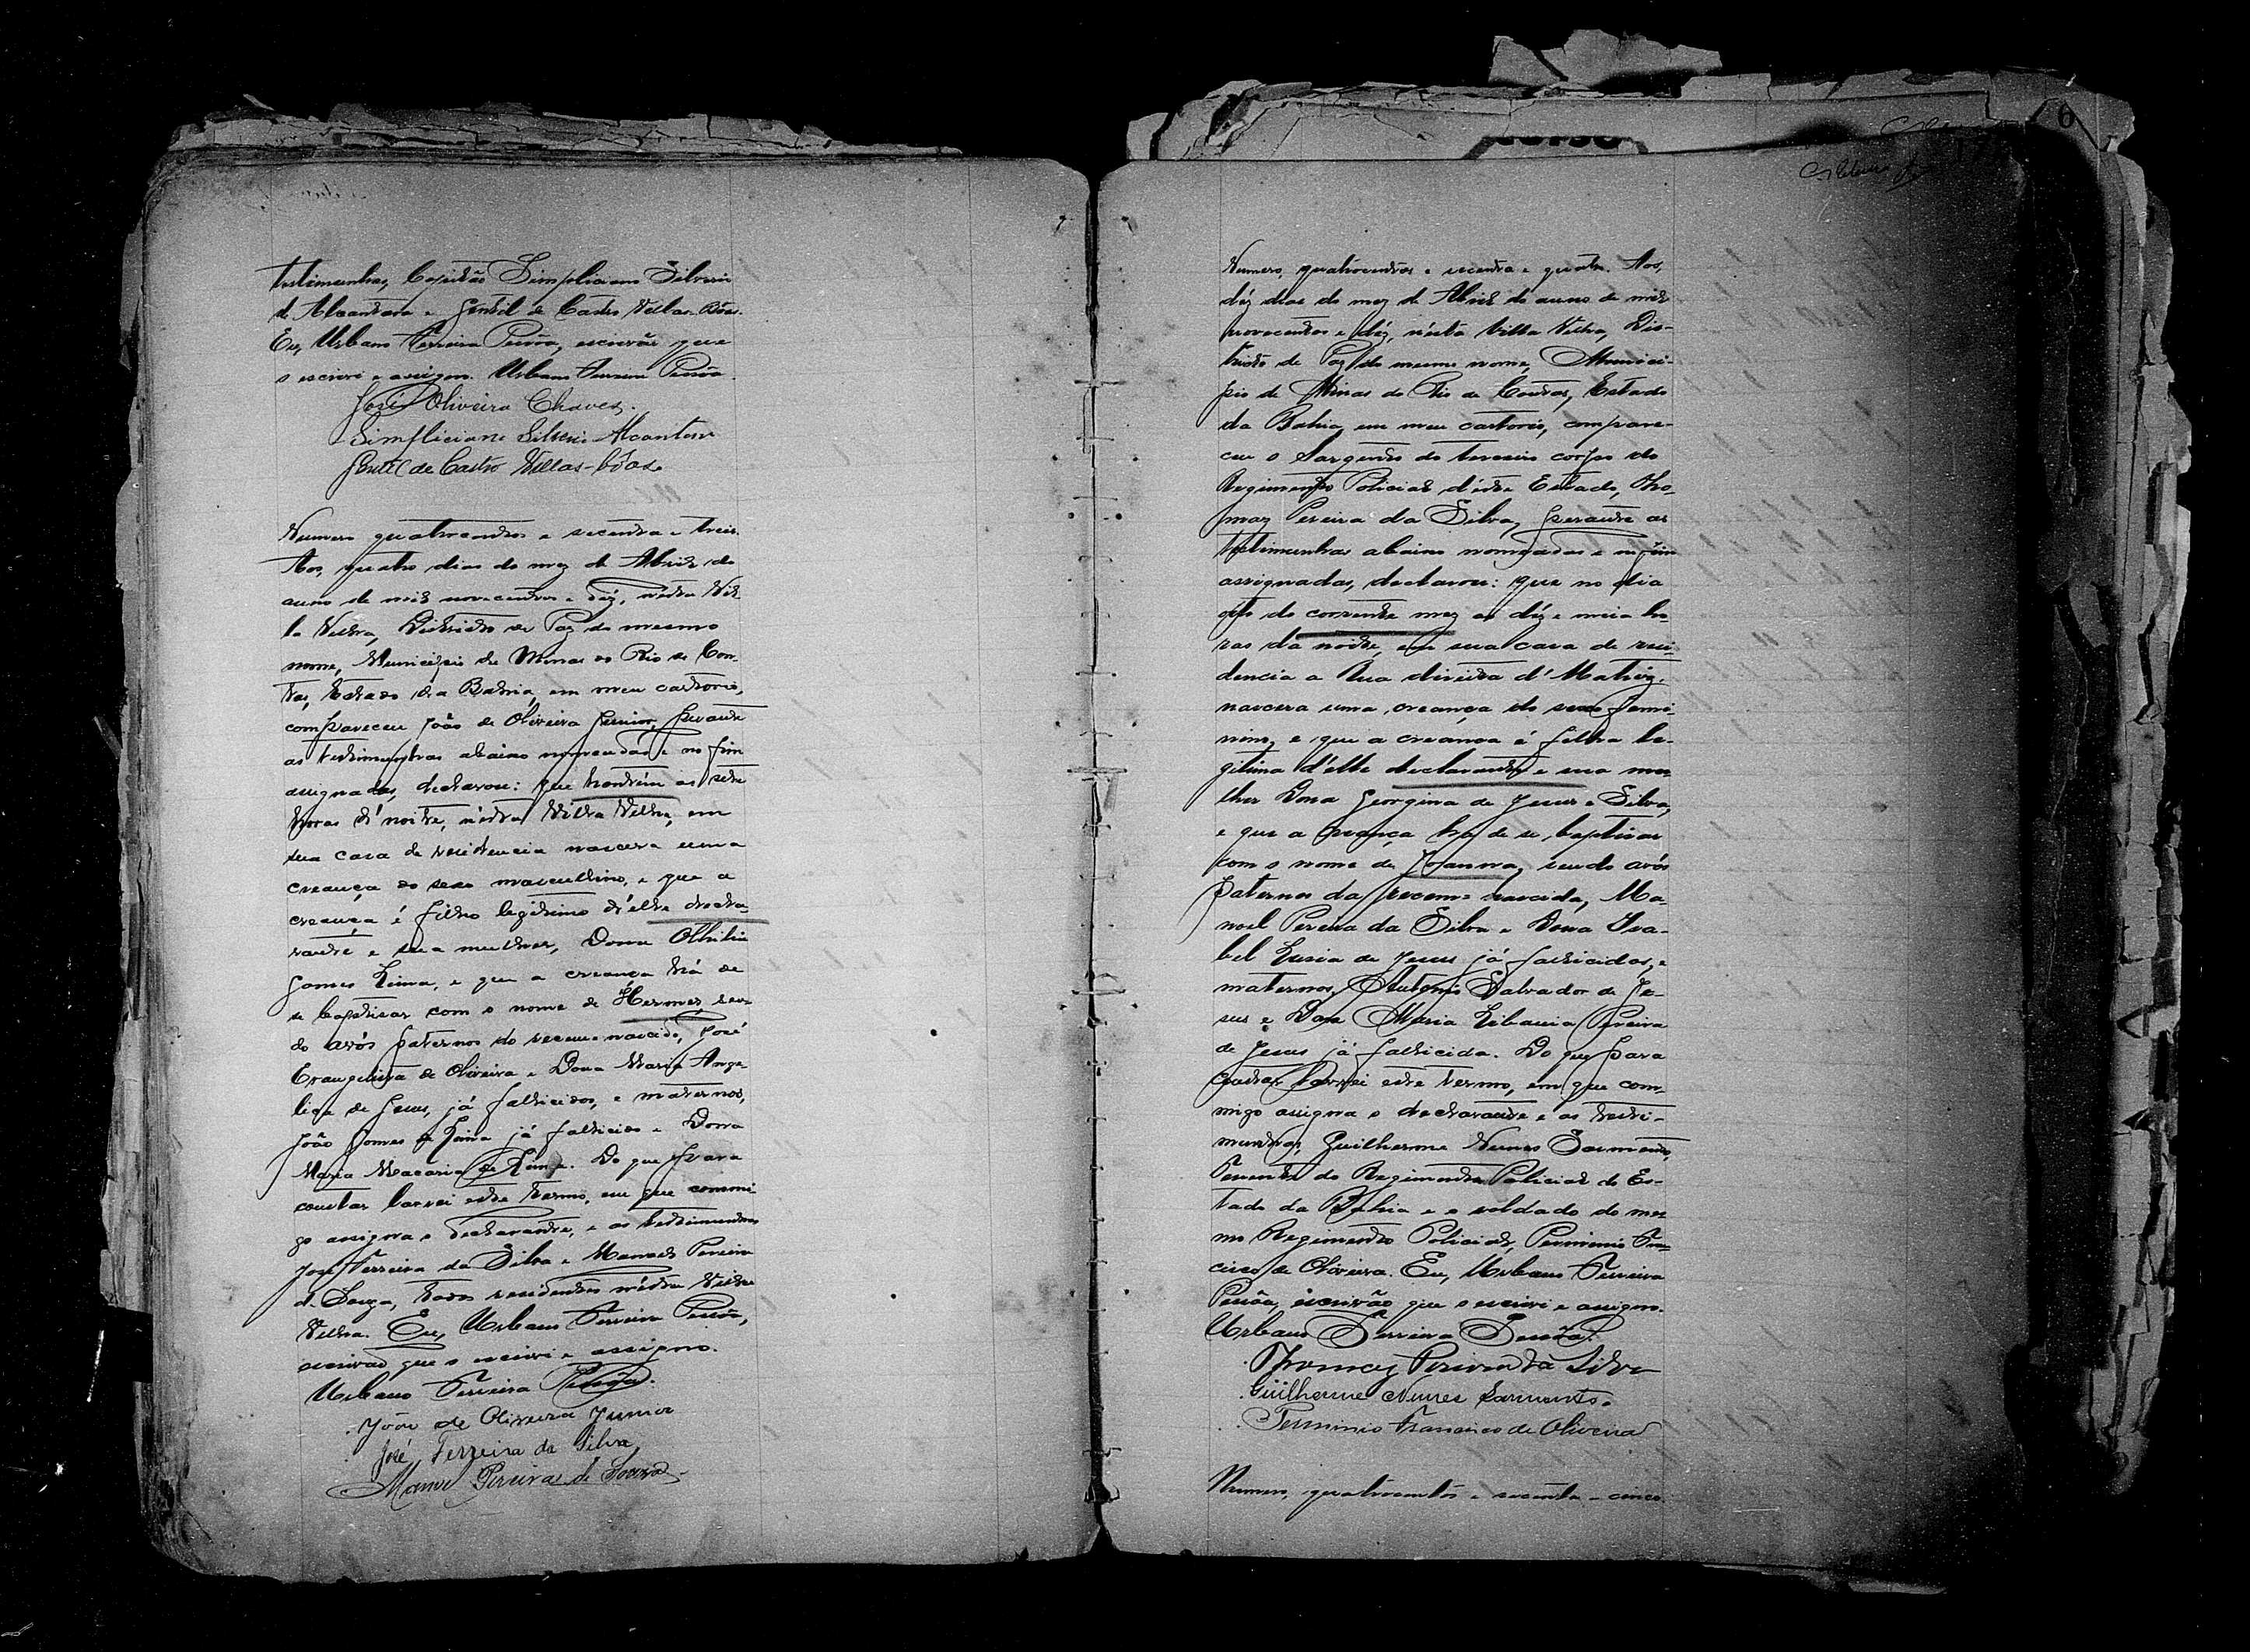 testimunhas, Capitão Simpliciano Silverio
d'Alcantara e Gentil de Castro Villas-Bôas.
Eu, Urbano Ferreira Pessôa, escrivão que
o escrevi e assigno. Urbano Ferreira Pessôa.
José Oliveira Chaves.
Simpliciano Silverio Alcantara
Gentil de Castro Villas-bôas.
Numero quatrocentos e secenta e treis.
Aos, quatro dias do mez de Abril do
anno de mil novecentos e déz, nesta Vil-
la Velha, Districto de Paz do mesmo
nome, Municipio de Minas do Rio de Con-
tas, Estado da Bahia, em meu cartorio,
compareceu João de Oliveira Junior, perante
as testimunhas abaixo nomeadas e no fim
assignadas, declarou: que hontém as sete
horas d'noite, nésta Villa Velha, em
sua casa de residencia nascera uma
creança do sexo masculino, e que a
creança é filho legitimo d'elle decla-
rante e sua mulher, Dona Othilia
Gomes Lima, e que a creança há de
se baptisar com o nome de Hermes sen-
do avós paternos do recem-nascido, José
Evangelista de Oliveira e Dona Maria Ange-
lica de Jesus, já fallicidos, e maternos,
João Gomes de Lima já fallicido e Dona
Maria Macaria de Lima. Do que para
constar lavrei este termo, em que commi-
go assigna o declarante, e as testimunhas
José Ferreira da Silva e Manoel Pereira
de Souza, todos residentes nésta Villa
Velha. Eu, Urbano Ferreira Pessôa,
escrivão que o escrevi e assigno.
Urbano Ferreira Pessôa.
João de Oliveira Junior
José Ferreira da Silva
Manoel Pereira de Souza
6
Numero, quatrocentos e secenta e quatro. Aos,
déz dias do mez de Abril do anno de mil
novecentos e déz, nésta Villa Velha, Dis-
tricto de Paz do mesmo nome, Munici-
pio de Minas do Rio de Contas, Estado
da Bahia, em meu cartorio, compare-
ceu o Sargento do terceiro corpo do
Regimento Policial d'este Estado, Tho-
maz Pereira da Silva, perante as
testimunhas abaixo nomeadas e no fim
assignadas, declarou: que no dia
oito do corrente mez as déz e meia ho-
ras da noite, em sua casa de resi-
dencia a Rua direita d'Matriz,
nascera uma creança do sexo femi-
nino, e que a creança é filha le-
gitima d'elle declarante e sua mu-
lher Dona Georgina de Jesus e Silva,
e que a creança há de se baptisar
com o nome de Joanna, sendo avós
paternos da recem-nascida, Ma-
noel Pereira da Silva e Dona Isa-
bel Luzia de Jesus já fallicidos, e
maternos, Antonio Salvador de Je-
sus e Dona Maria Libania Pereira
de Jesus já fallicida. Do que para
constar lavrei este termo, em que com-
migo assigna o declarante e as testi-
munhas, Guilherme Nunes Sarmento,
Tenente do Regimento Policial do Es-
tado da Bahia e o soldado do mes-
mo Regimento Policial, Ferminio Fran-
cisco de Oliveira. Eu, Urbano Ferreira
Pessôa, escrivão que o escrevi e assigno.
Urbano Ferreira Pessôa.
Thomaz Pereira da Silva
Guilherme Nunes Sarmento.
Ferminio Francisco de Oliveira
Numero, quatrocentos e secenta e cinco.